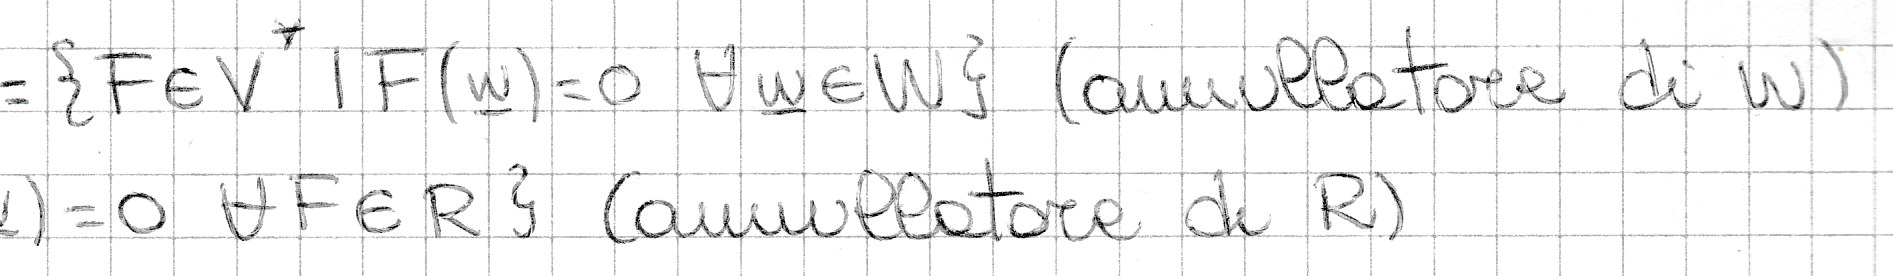 = {F ∈ V* | F(w) = 0 ∀ w ∈ W} (annullatore di W)
) = 0 ∀ F ∈ R } (annullatore di R)